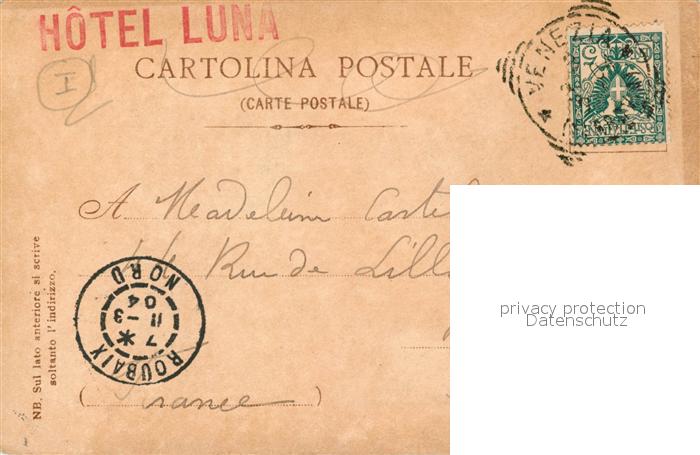 HÔTEL LUNA
I
CARTOLINA POSTALE
(CARTE POSTALE)
VENEZIA
5
A Madeleine
Rue de Lill
France
ROUBAIX
7 *
11-3
04
NORD
NB. Sul lato anteriore si scrive
soltanto l'indirizzo.
privacy protection
Datenschutz